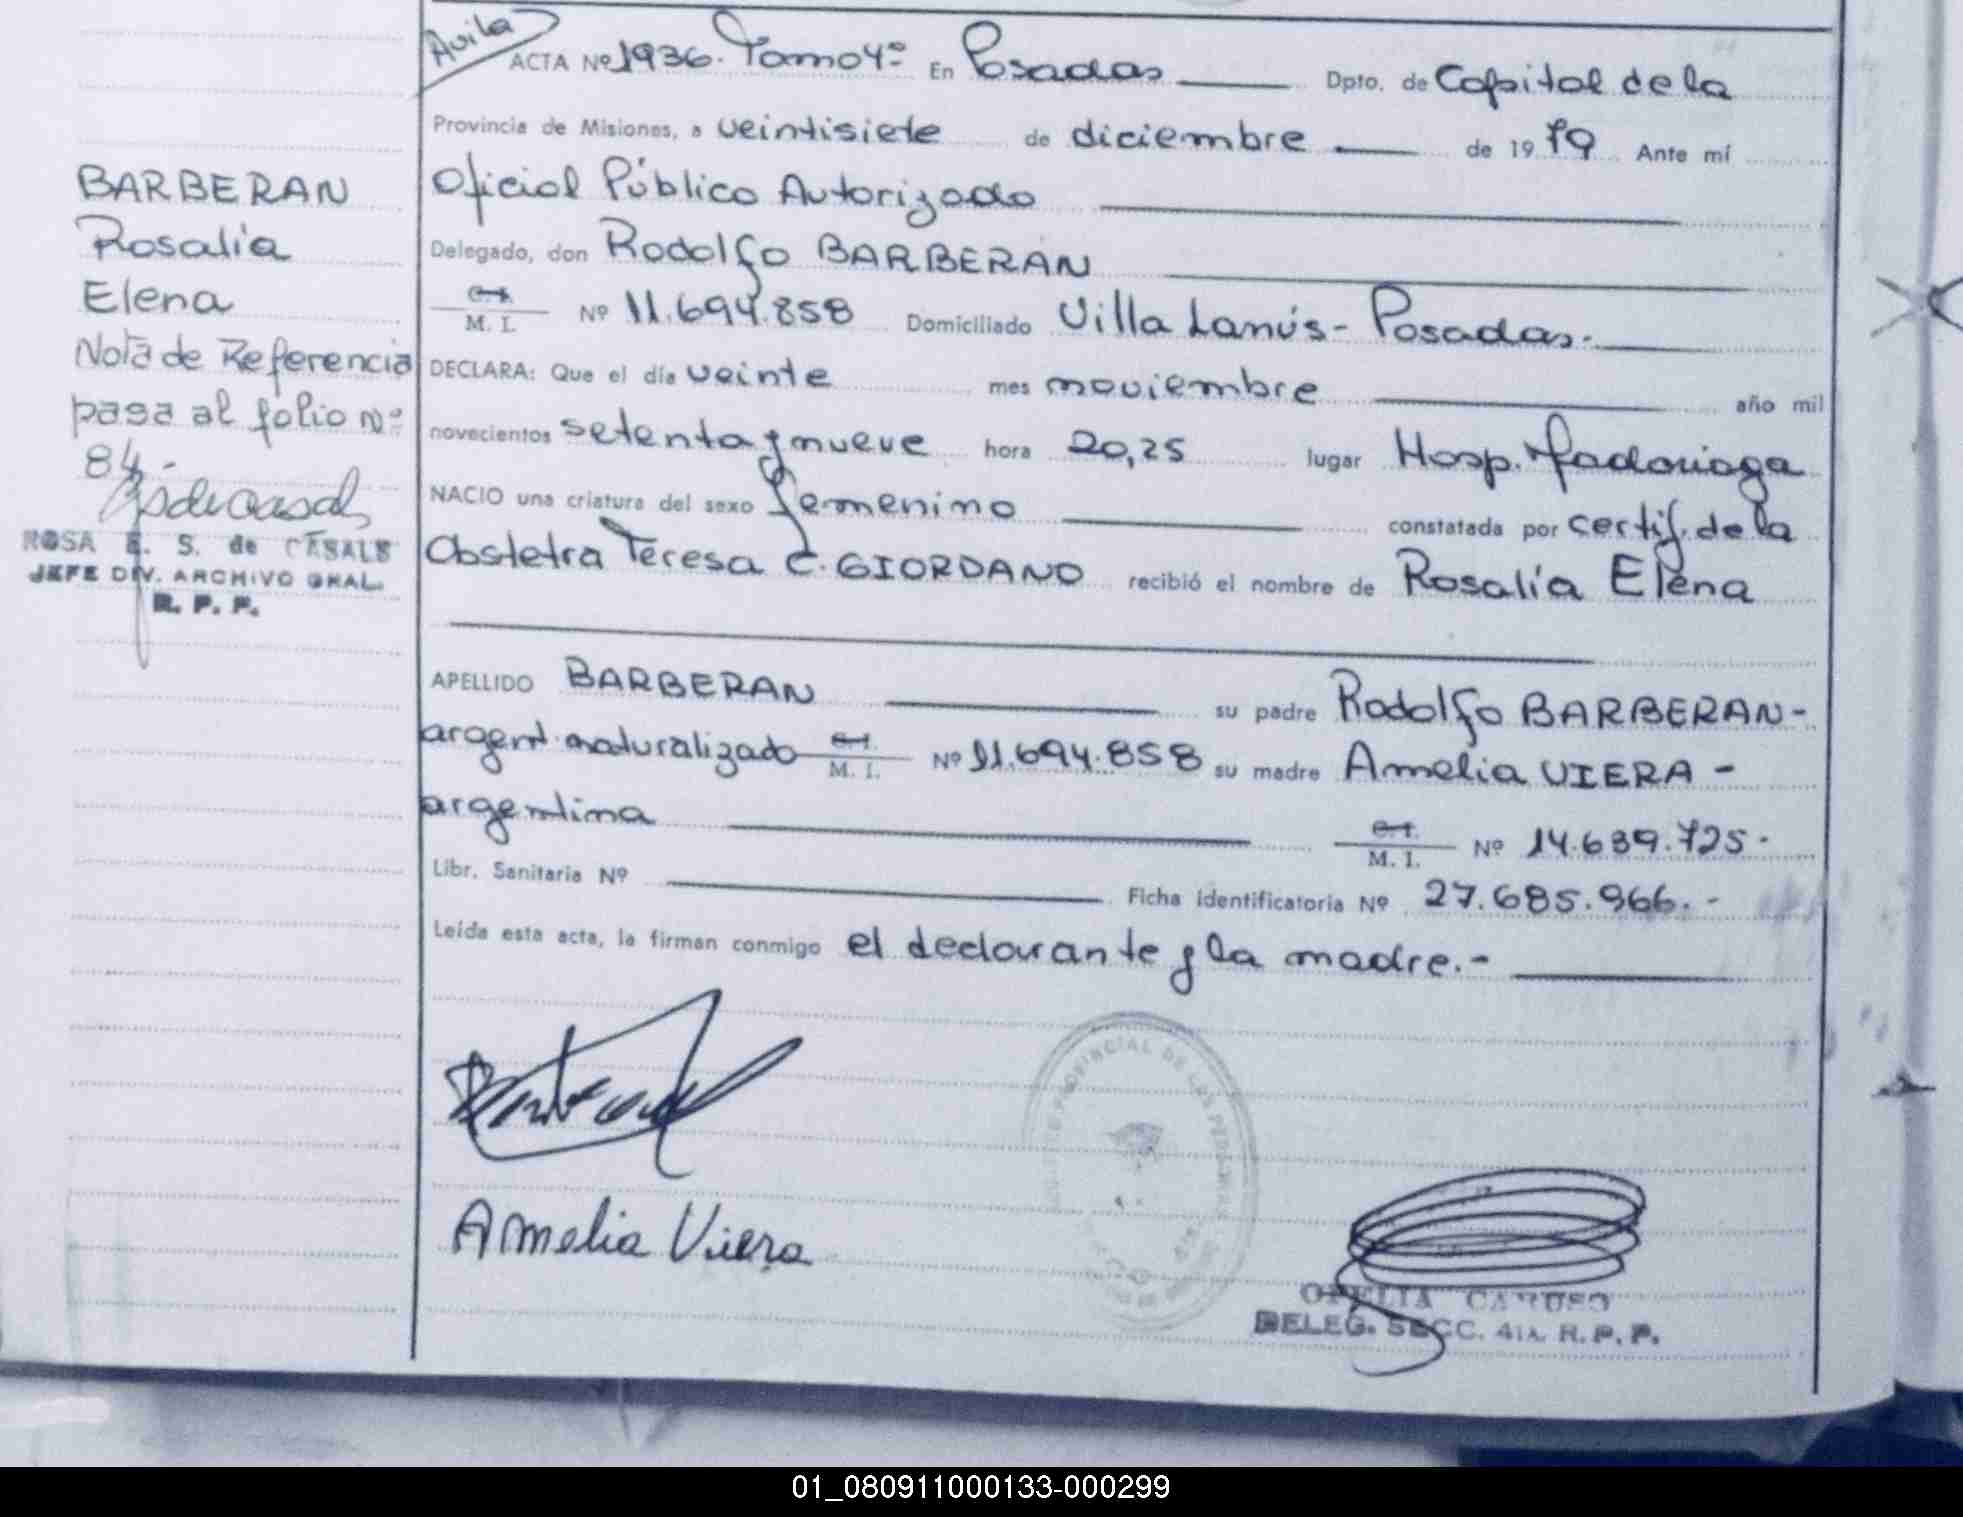 Avila
ACTA Nº 1936. Tomo 4º En Posadas Dpto. de Capital de la
Provincia de Misiones, a veintisiete de diciembre de 1979 Ante mí
Oficial Público Autorizado
Delegado, don Rodolfo BARBERAN
C.I. M. I. Nº 11.694.858 Domiciliado Villa Lanús - Posadas.-
DECLARA: Que el día veinte mes noviembre año mil
novecientos setenta y nueve hora 20,25 lugar Hosp. Madariaga
NACIO una criatura del sexo femenino constatada por certif. de la
Obstetra Teresa C. GIORDANO recibió el nombre de Rosalía Elena
APELLIDO BARBERAN su padre Rodolfo BARBERAN-
argent. naturalizado C.I. M. I. Nº 11.694.858 su madre Amelia VIERA -
argentina C.I. M. I. Nº 14.639.725.
Libr. Sanitaria Nº Ficha Identificatoria Nº 27.685.966.-
Leída esta acta, la firman conmigo el declarante y la madre.-
BARBERAN
Rosalía
Elena
Nota de Referencia
pasa al folio Nº
84.-
ROSA E. S. de CASALS
JEFE DIV. ARCHIVO GRAL.
R. P. P.
Amelia Viera
PROVINCIAL DE LAS PERSONAS
OFELIA CARUSO
DELEG. SECC. 4ta. R. P. P.
01_080911000133-000299